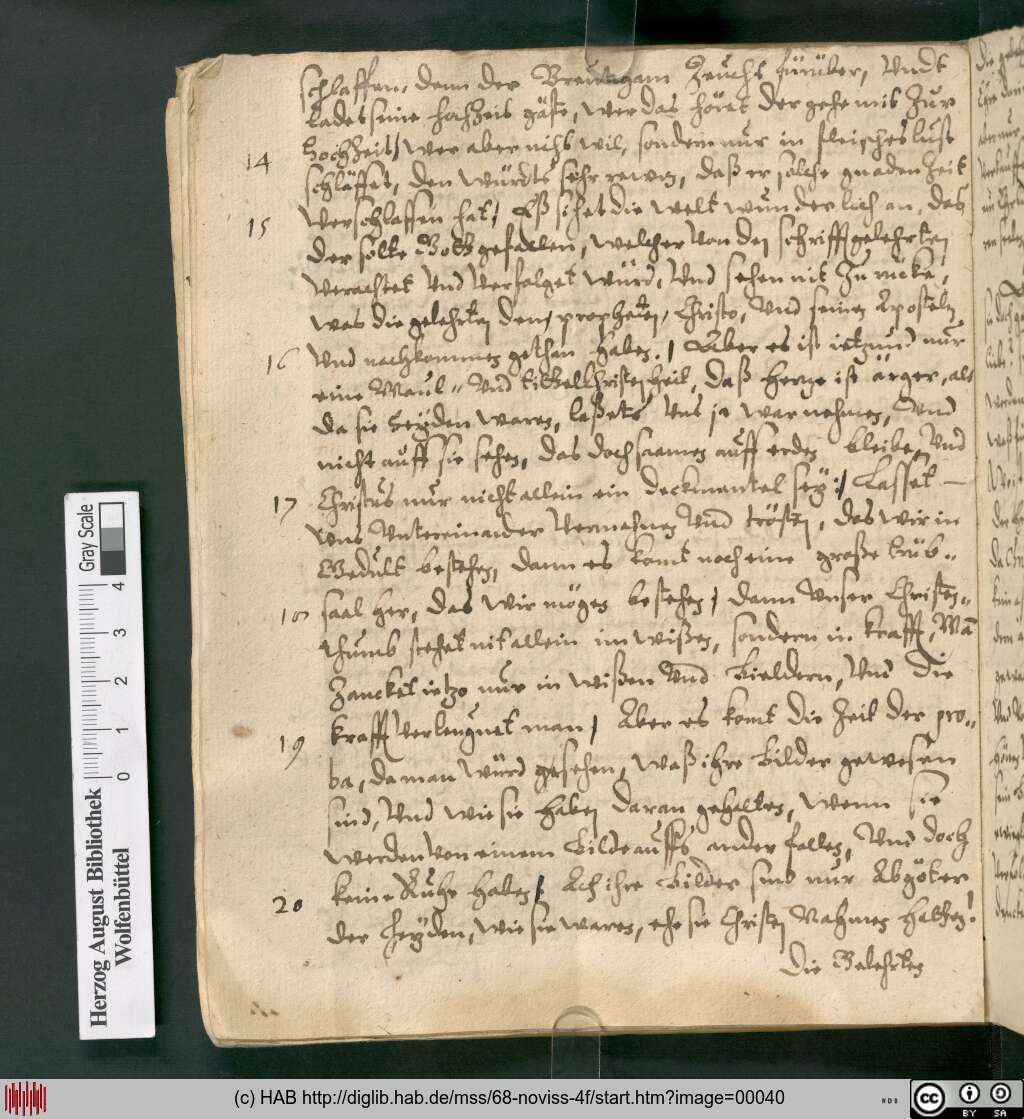 schlaffen, denn der Breutigam Zeucht fürüber, Undt
ladet seine hochZeit gäste, wer das höret der gehe mit Zur
14 hochZeit / wer aber nicht wil, sondern nur in fleisches lust
schläffet, den würdts sehr rewen, daß er solche gnaden Zeit
15 Verschlaffen hat / Eß sihet die welt wunderlich an, das
der solte Gott gefallen, welcher Von den schrifftgelehrten
Verachtet Und Verfolget würd, Und sehen nit Zu rücke,
was die gelehrten den propheten, Christo, Und seinen Aposteln
16 Und nachkommen gethan haben. / Aber es ist ietzund nur
eine Maul- Und tittel Christenheit, daß hertze ist ärger, als
da sie Heyden waren, laßets Uns ja war nehmen, Und
nicht auff sie sehen, das doch saamen auff erden bleibe, Und
17 Christus nur nicht allein ein deckmantel sey / Lasset
Uns Untereinander Vermahnen Und trösten, das wir in
Gedult bestehen, dann es komt noch eine große trüb-
18 saal her, das wir mögen bestehen / dann Unser Christen-
thumb stehet nit allein im wißen, sondern in krafft, Mā
Zancket ietzo nur in wißen Und Bieldern, Und die
19 krafft Verleugnet man / Aber es komt die Zeit der pro-
ba, da man würd gesehen, waß ihre Bilder gewesen
sind, Und wie sie haben daran gehalten, wenn sie
werden von einem Bilde auffs ander fallen, Und doch
20 keine Ruhe haben / Ach ihre Bilder sind nur Abgötter
der Heyden, wie sie waren, ehe sie Christen Nahmen hatten!
Die Gelehrten
Gray Scale
0 1 2 3 4
Herzog August Bibliothek
Wolfenbüttel
(c) HAB http://diglib.hab.de/mss/68-noviss-4f/start.htm?image=00040
cc BY SA